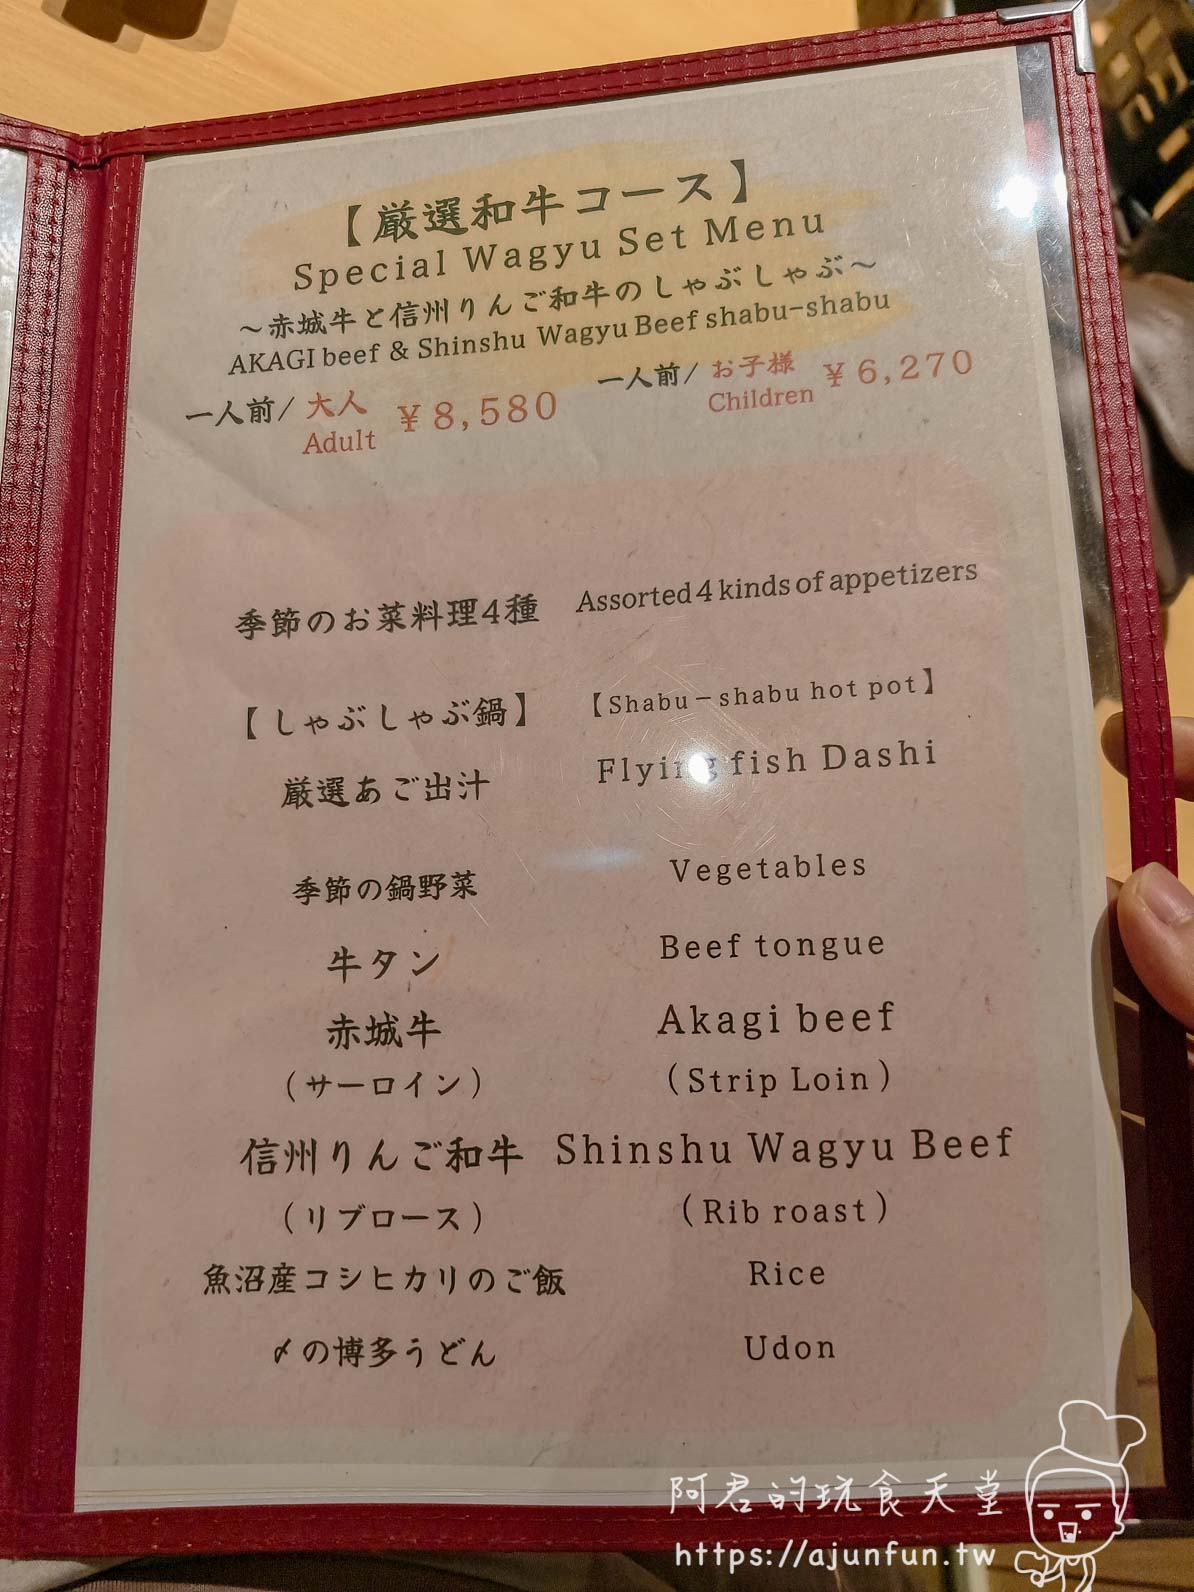 【厳選和牛コース】
Special Wagyu Set Menu
～赤城牛と信州りんご和牛のしゃぶしゃぶ～
AKAGI beef & Shinshu Wagyu Beef shabu-shabu
一人前/ 大人 Adult ￥8,580
一人前/ お子様 Children ￥6,270
季節のお菜料理4種 Assorted 4 kinds of appetizers
【しゃぶしゃぶ鍋】 【Shabu－shabu hot pot】
厳選あご出汁 Flying fish Dashi
季節の鍋野菜 Vegetables
牛タン Beef tongue
赤城牛 Akagi beef
（サーロイン） （Strip Loin）
信州りんご和牛 Shinshu Wagyu Beef
（リブロース） （Rib roast）
魚沼産コシヒカリのご飯 Rice
〆の博多うどん Udon
阿君的玩食天堂
https://ajunfun.tw